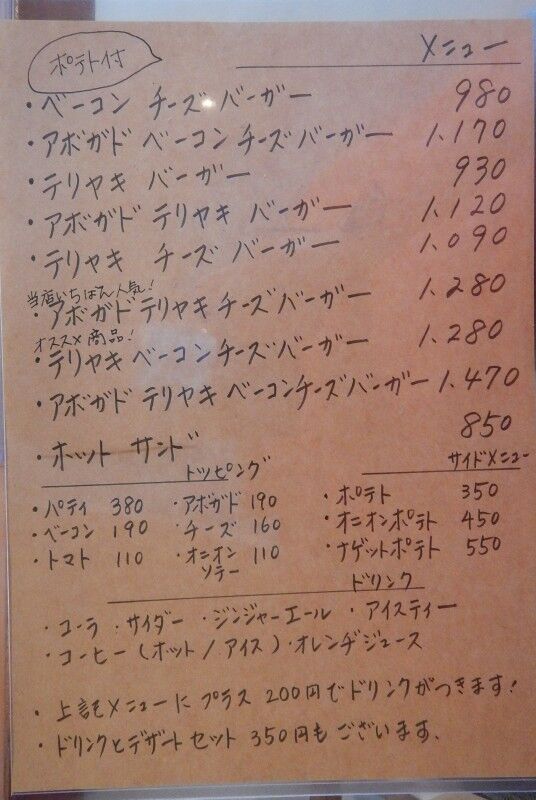 ポテト付
メニュー
・ベーコン チーズ バーガー 980
・アボガド ベーコン チーズ バーガー 1,170
・テリヤキ バーガー 930
・アボガド テリヤキ バーガー 1,120
・テリヤキ チーズ バーガー 1,090
当店いちばん人気!
・アボガド テリヤキ チーズ バーガー 1,280
オススメ商品!
・テリヤキ ベーコン チーズ バーガー 1,280
・アボガド テリヤキ ベーコンチーズバーガー 1,470
・ホット サンド 850
トッピング
・パティ 380 ・アボガド 190
・ベーコン 190 ・チーズ 160
・トマト 110 ・オニオンソテー 110
サイドメニュー
・ポテト 350
・オニオンポテト 450
・ナゲットポテト 550
ドリンク
・コーラ ・サイダー ・ジンジャーエール ・アイスティー
・コーヒー (ホット / アイス) ・オレンヂジュース
・上記メニューに プラス 200円でドリンクがつきます!
・ドリンクとデザートセット 350円もございます.